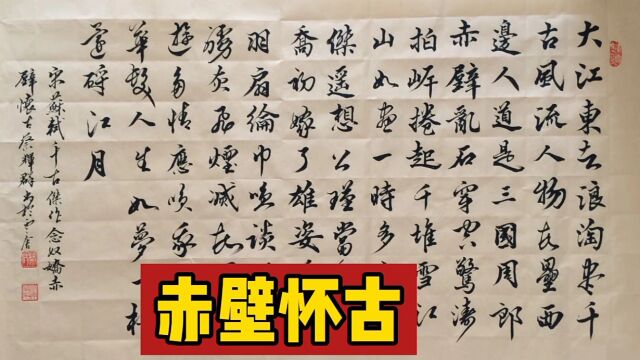 大江東去浪淘盡千
古風流人物故壘西
邊人道是三國周郎
赤壁亂石穿空驚濤
拍岸捲起千堆雪江
山如畫一時多
傑遥想公瑾當
喬初嫁了雄姿
羽扇綸巾談
灰飛煙滅故
遊多情應笑我
華髮人生如夢一樽
還酹江月
宋蘇軾千古傑作念奴嬌赤
壁懷古
赤壁怀古